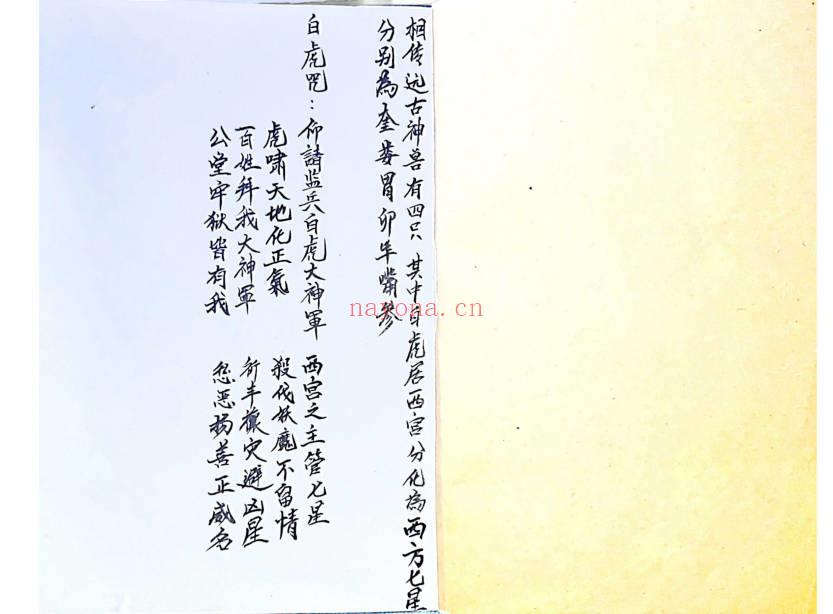 相传远古神兽有四只 其中白虎居西宫分化為西方七星
分别為奎娄胃卯毕嘴参
白虎咒：仰請监兵白虎大神軍 西宫之主管七星
虎啸天地化正氣 殺伐妖魔不留情
百姓拜我大神軍 祈丰禳灾避凶星
公堂牢狱皆有我 惩恶扬善正威名
nayona.cn